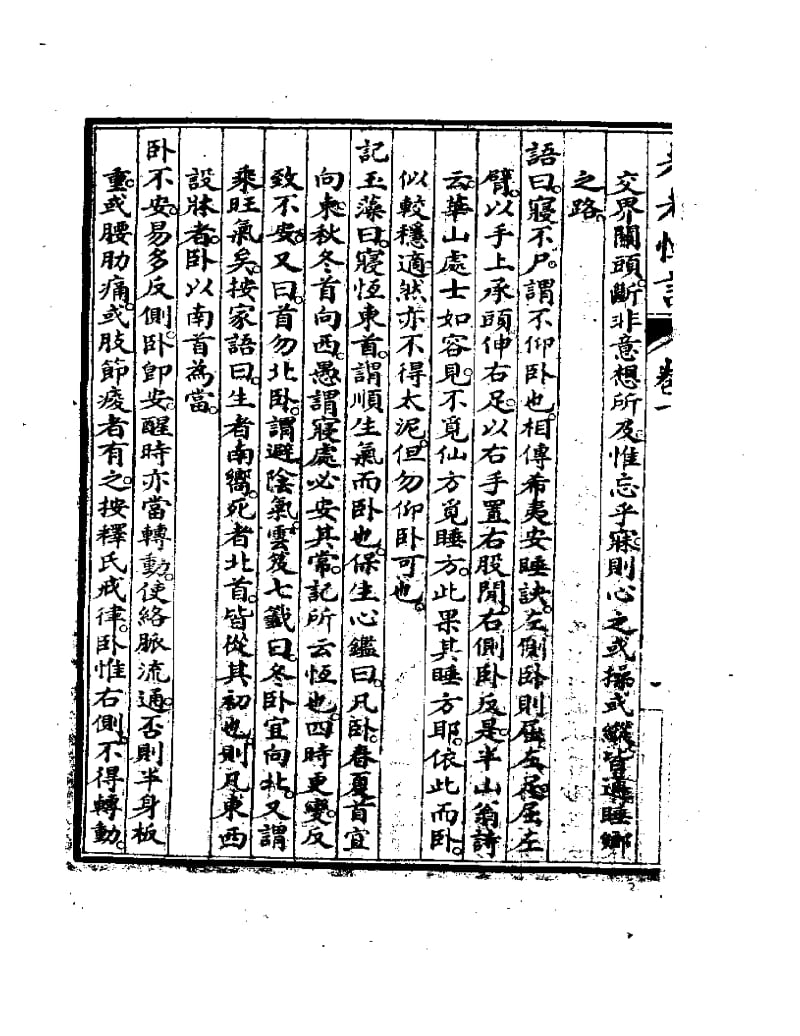 老老恒言 卷一
交界關頭斷非意想所及惟忘乎寐則心之或操或縱皆通睡鄉
之路。
語曰寢不尸謂不仰卧也相傳希夷安睡訣。左側卧則屈左足屈左
臂。以手上承頭伸右足。以右手置右股間。右側卧反是。半山翁詩
云。華山處士如容見。不覓仙方覓睡方。此果其睡方耶。依此而卧。
似較穩適。然亦不得太泥。但勿仰卧可也。
記玉藻曰。寢恒東首。謂順生氣而卧也。保生心鑑曰。凡卧。春夏首宜
向東。秋冬首向西。愚謂寢處必安其常。記所云恆也。四時更變。反
致不安。又曰。首勿北卧。謂避陰氣。雲笈七籤曰。冬卧宜向北。又謂
乘旺氣矣。按家語曰。生者南嚮。死者北首。皆從其初也。則凡東西
設牀者。卧以南首為當。
卧不安。易多反側。卧卽安。醒時亦當轉動。使絡脈流通。否則半身板
重。或腰肋痛。或肢節痠者有之。按釋氏戒律。卧惟右側。不得轉動。